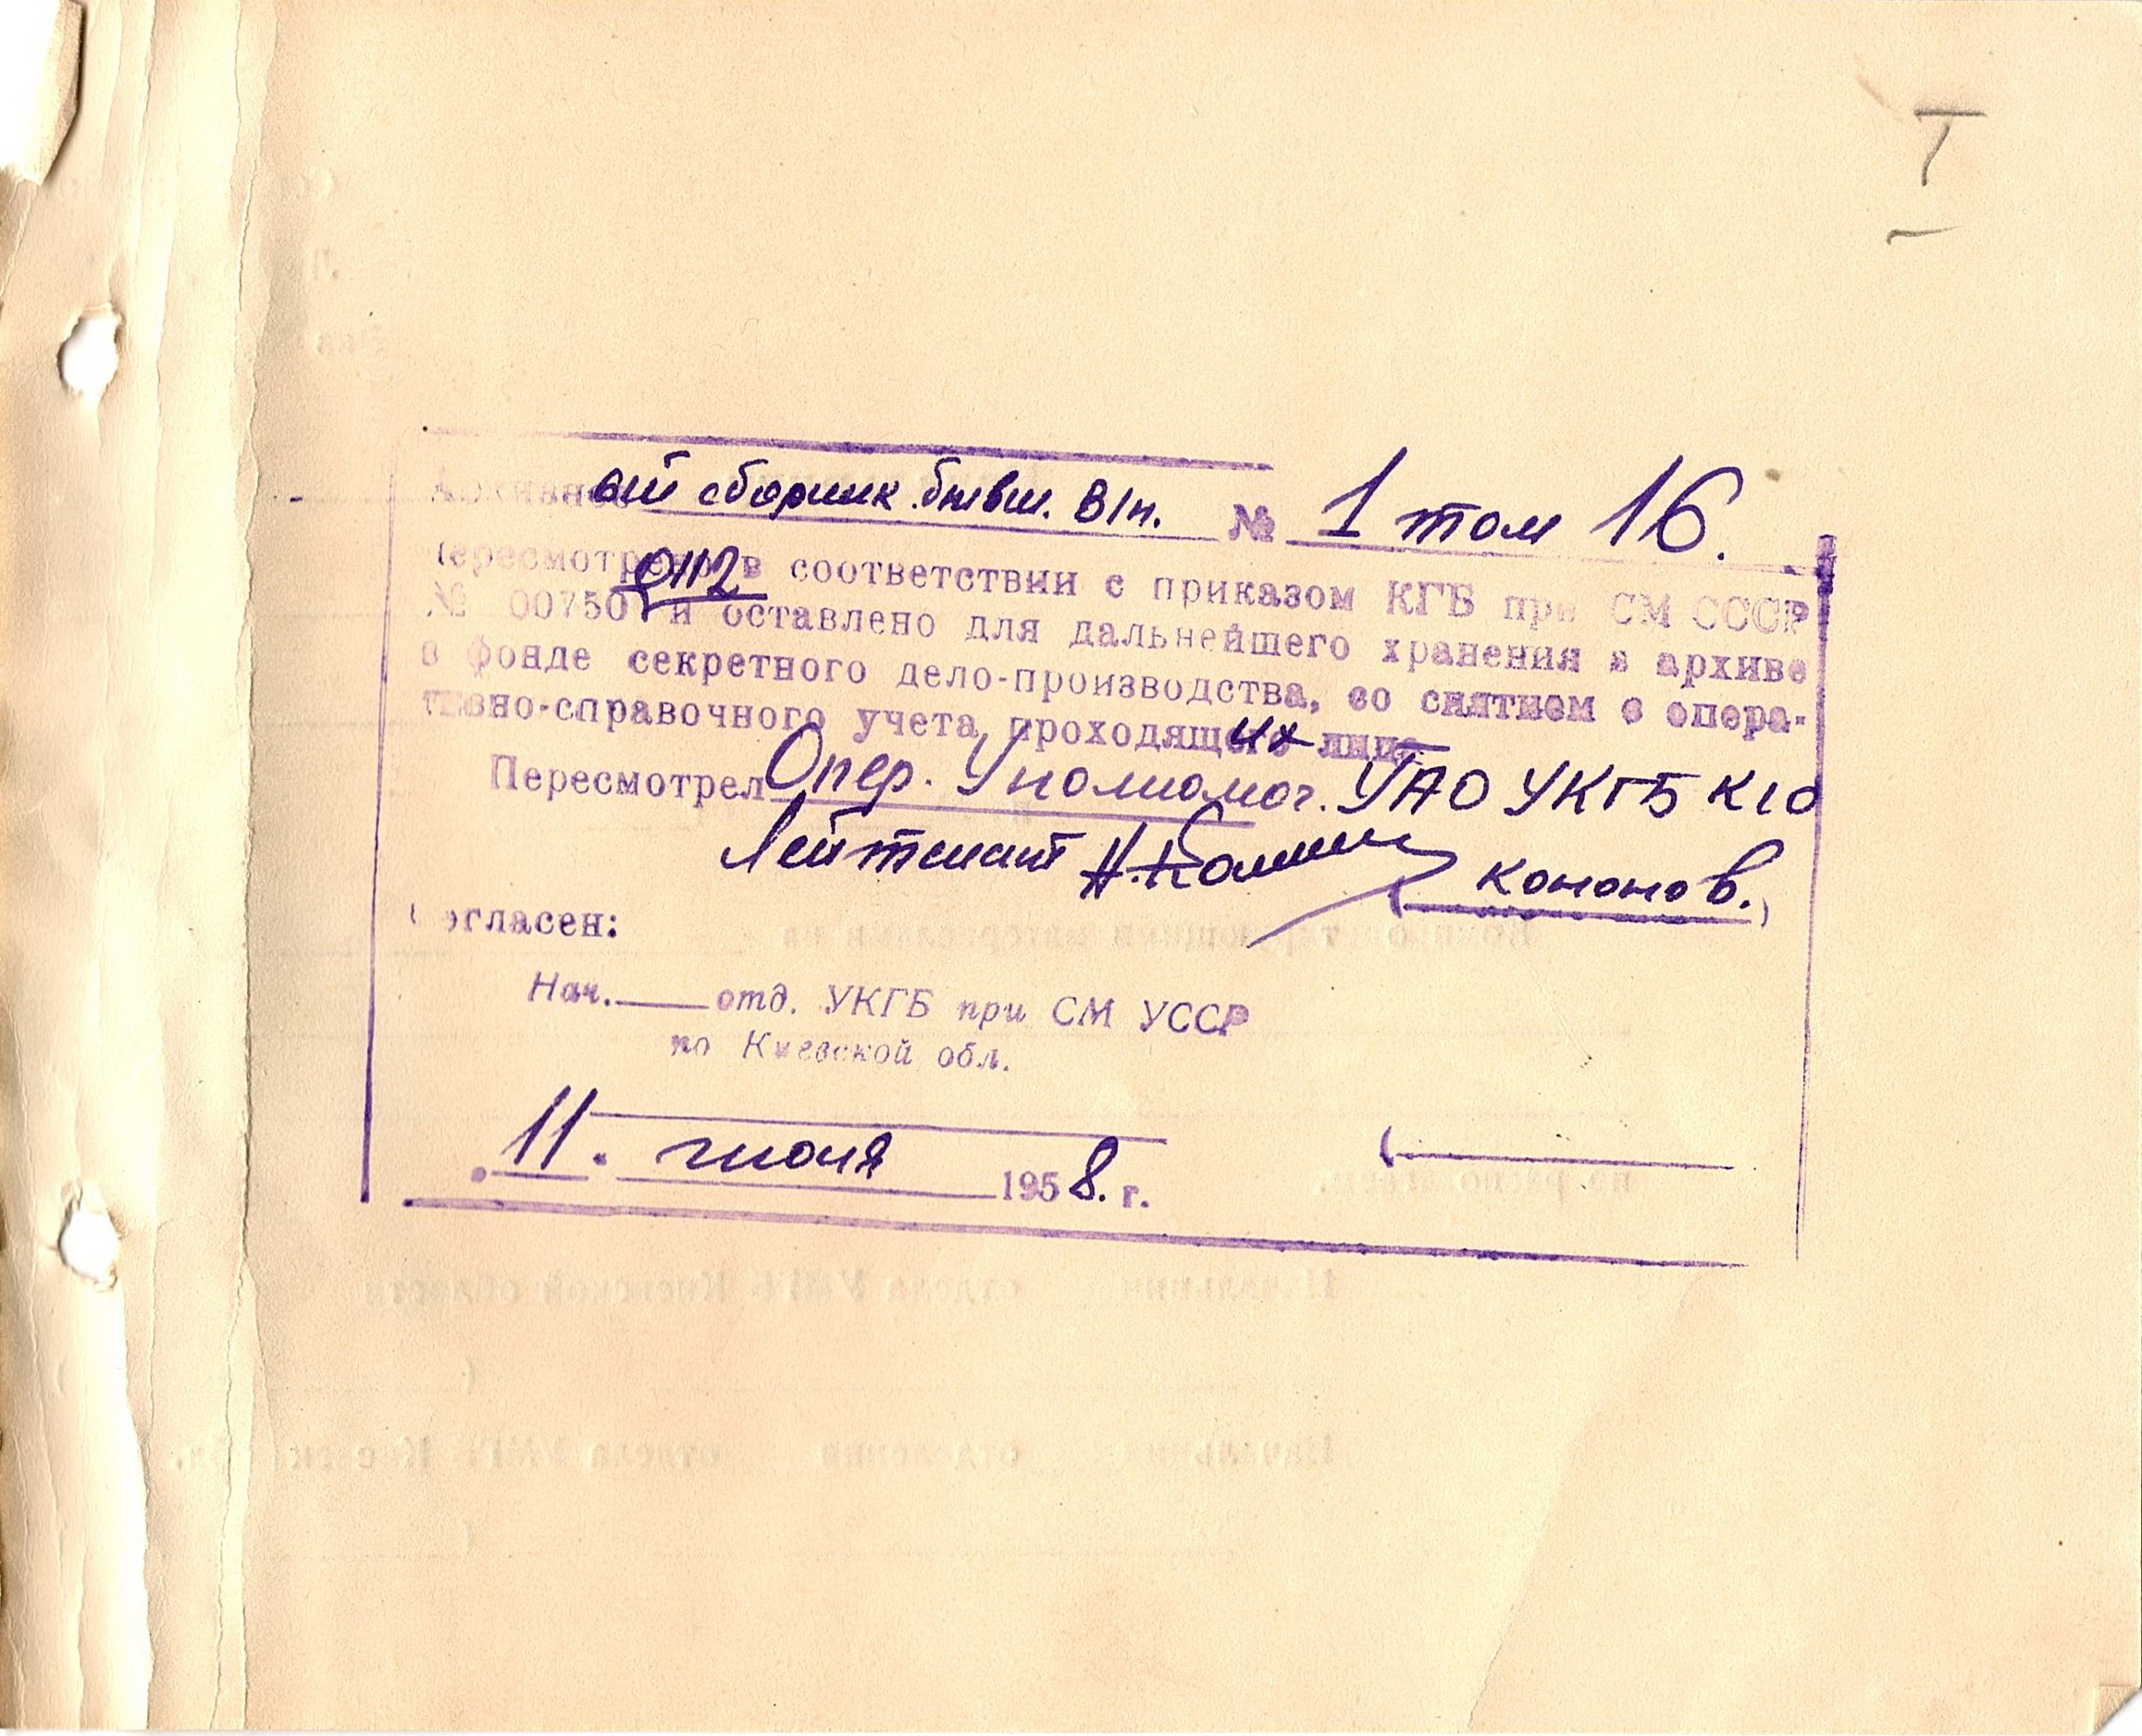 Архивный сборник бывш. В/п. № 1 том 16.
0112
пересмотрено в соответствии с приказом КГБ при СМ СССР
№ 00750 и оставлено для дальнейшего хранения в архиве
в фонде секретного дело-производства, со снятием с опера-
тивно-справочного учета проходящих лиц
Пересмотрел Опер. Уполномоч. УАО УКГБ КО
Лейтенант (Кононов.)
Согласен:
Нач. отд. УКГБ при СМ УССР
по Киевской обл.
„11“ июня 1958. г.